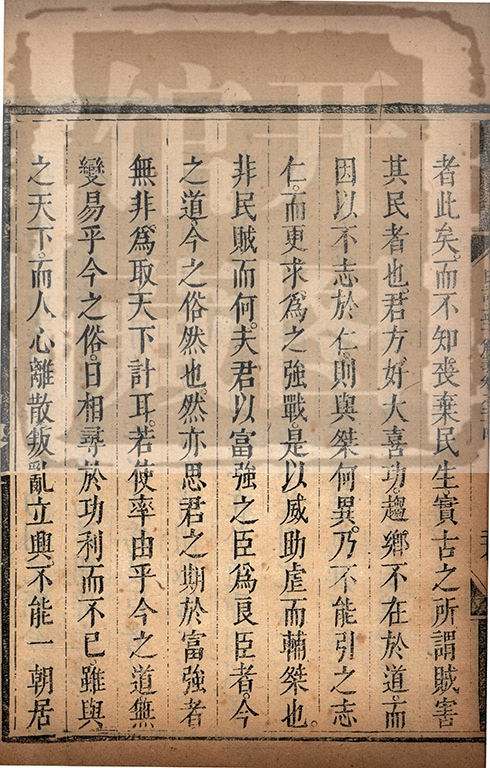 者此矣而不知喪棄民生實古之所謂賊害
其民者也君方好大喜功趨鄉不在於道而
因以不志於仁則與桀何異乃不能引之志
仁而更求為之強戰是以威助虐而輔桀也
非民賊而何夫君以富強之臣為良臣者今
之道今之俗然也然亦思君之期於富強者
無非為取天下計耳若使率由乎今之道無
變易乎今之俗日相尋於功利而不已雖與
之天下而人心離散叛亂立興不能一朝居